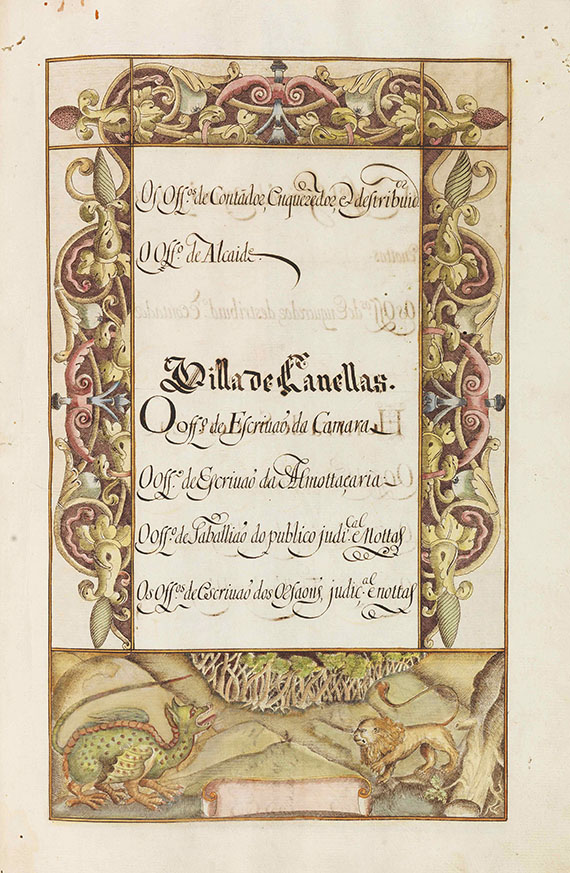 Os Off.os de Contador, Enqueredor, e destribuidor
O Off.o de Alcaide.
Villa de Canellas.
O off.o de Escriuaõ da Camara.
O off.o de Escriuaõ da Almottaçaria
O off.o de Taballiaõ do publico judi.cal e Nottas
Os Off.os de Escriuaõ dos judiç.al e nottas